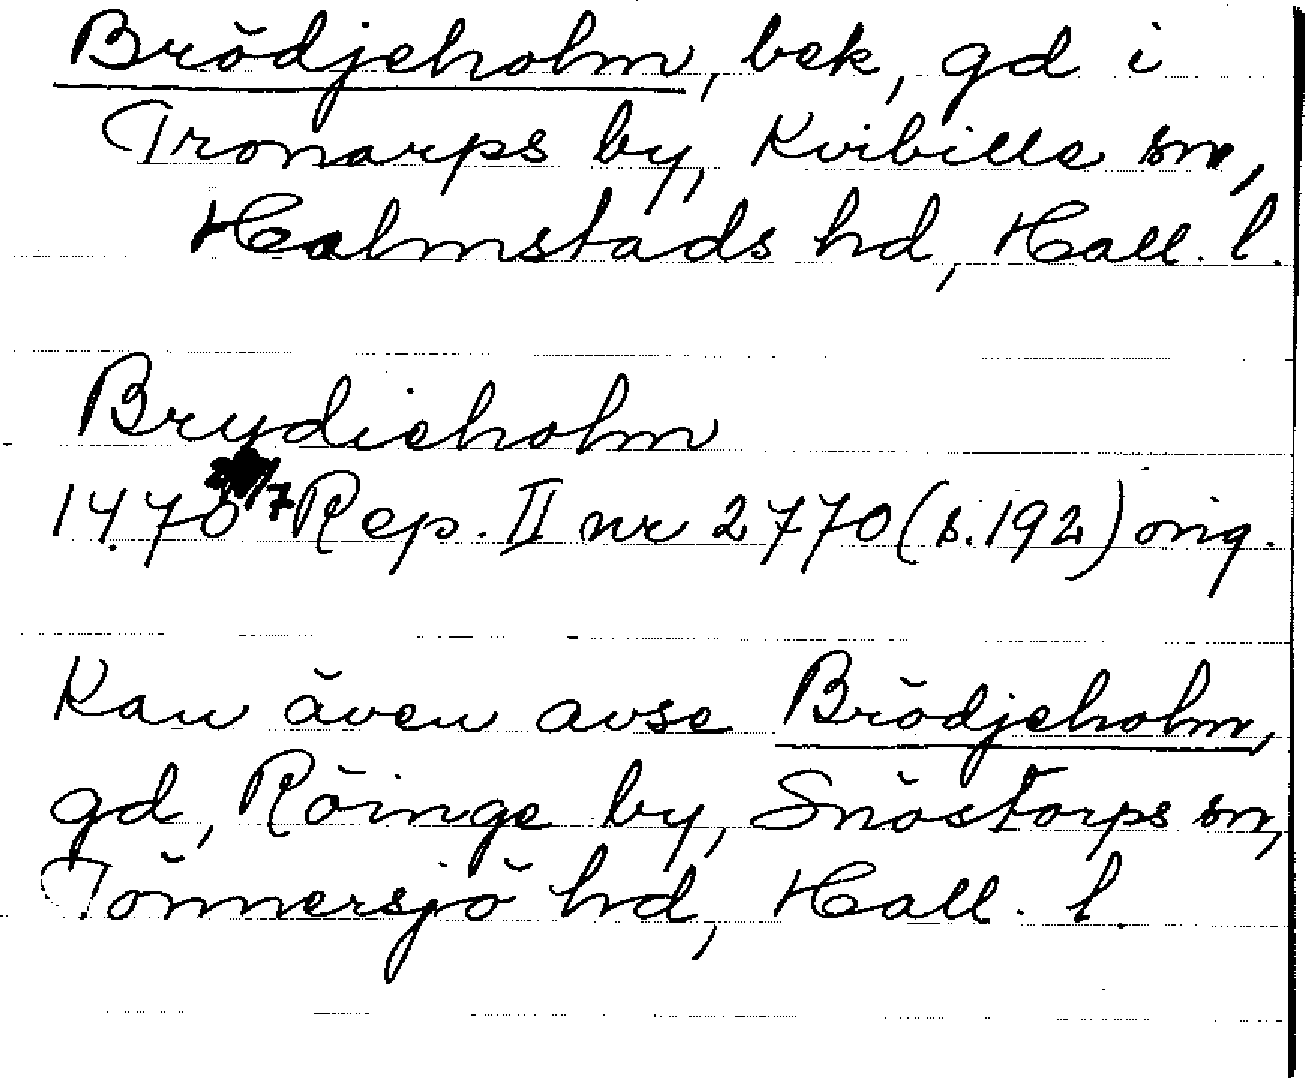 Brödjeholm, bek, gd i
Tronarps by, Kvibille sn,
Halmstads hd, Hall. l.
Brydieholm
1470 /7 Rep. II nr 2770 (s. 192) orig.
Kan även avse Brödjeholm,
gd, Röinge by, Snöstorps sn,
Tönnersjö hd, Hall. l.